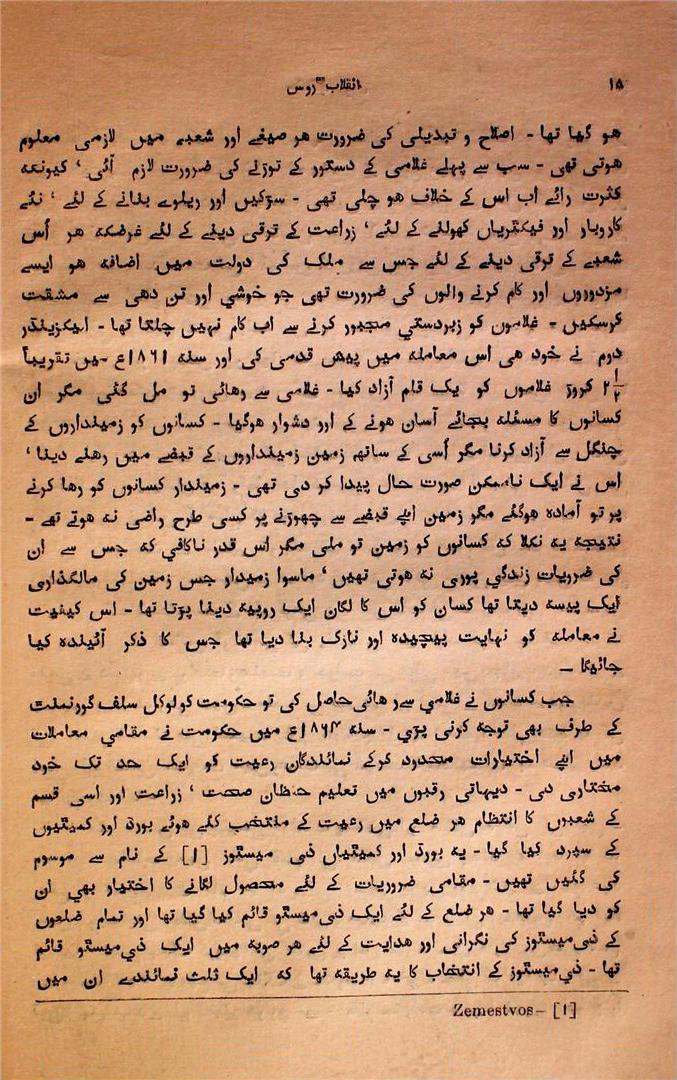 انقلاب روس ۱۵
ھو گیا تھا - اصلاح و تبدیلی کی ضرورت ھر صیغے اور شعبے میں لازمی معلوم
ھوتی تھی - سب سے پہلے غلامی کے دستور کے توڑنے کی ضرورت لازم آئی ' کیونکہ
کثرت رائے اب اس کے خلاف ھو چلی تھی - سڑکیں اور ریلوے بنانے کے لئے ' نئے
کاروبار اور فیکٹریاں کھولنے کے لئے ' زراعت کے ترقی دینے کے لئے غرضکہ ھر اُس
شعبے کے ترقی دینے کے لئے جس سے ملک کی دولت میں اضافہ ھو ایسے
مزدوروں اور کام کرنے والوں کی ضرورت تھی جو خوشی اور تن دھی سے مشقت
کرسکیں - غلاموں کو زبردستی مجبور کرنے سے اب کام نہیں چلتا تھا - الیکزینڈر
دوم نے خود ھی اس معاملہ میں پیش قدمی کی اور سنہ ۱۸۶۱ع میں تقریباً
۲ ۱/۲ کروڑ غلاموں کو یک قلم آزاد کیا - غلامی سے رھائی تو مل گئی مگر ان
کسانوں کا مسئلہ بجائے آسان ھونے کے اور دشوار ھوگیا - کسانوں کو زمینداروں کے
چنگل سے آزاد کرنا مگر اُسی کے ساتھ زمین زمینداروں کے قبضے میں رھنے دینا '
اس نے ایک ناممکن صورت حال پیدا کر دی تھی - زمیندار کسانوں کو رھا کرنے
پر تو آمادہ ھوگئے مگر زمین اپنے قبضے سے چھوڑنے پر کسی طرح راضی نہ ھوتے تھے -
نتیجہ یہ نکلا کہ کسانوں کو زمین تو ملی مگر اس قدر ناکافی کہ جس سے ان
کی ضروریات زندگی پوری نہ ھوتی تھیں ' ماسوا زمیدار جس زمین کی مالگذاری
ایک پیسہ دیتا تھا کسان کو اس کا لگان ایک روپیہ دینا پڑتا تھا - اس کیفیت
نے معاملہ کو نہایت پیچیدہ اور نازک بنا دیا تھا جس کا ذکر آئیندہ کیا
جائیگا -
جب کسانوں نے غلامی سے رھائی حاصل کی تو حکومت کو لوکل سلف گورنمنت
کے طرف بھی توجہ کرنی پڑی - سنہ ۱۸۶۴ع میں حکومت نے مقامی معاملات
میں اپنے اختیارات محدود کرکے نمائندگان رعیت کو ایک حد تک خود
مختاری دی - دیہاتی رقبوں میں تعلیم حفظان صحت ' زراعت اور اسی قسم
کے شعبوں کا انتظام ھر ضلع میں رعیت کے منتخب کئے ھوئے بورڈ اور کمیٹیوں
کے سپرد کیا گیا - یہ بورڈ اور کمیٹیاں ذی میسٹوز [۱] کے نام سے موسوم
کی گئیں تھیں - مقامی ضروریات کے لئے محصول لگانے کا اختیار بھی ان
کو دیا گیا تھا - ھر ضلع کے لئے ایک ذی میسٹو قائم کیا گیا تھا اور تمام ضلعوں
کے ذی میسٹوز کی نگرانی اور ھدایت کے لئے ھر صوبہ میں ایک ذی میسٹو قائم
تھا - ذی میسٹوز کے انتخاب کا یہ طریقہ تھا کہ ایک ثلث نمائندے ان میں
Zemestvos - [۱]